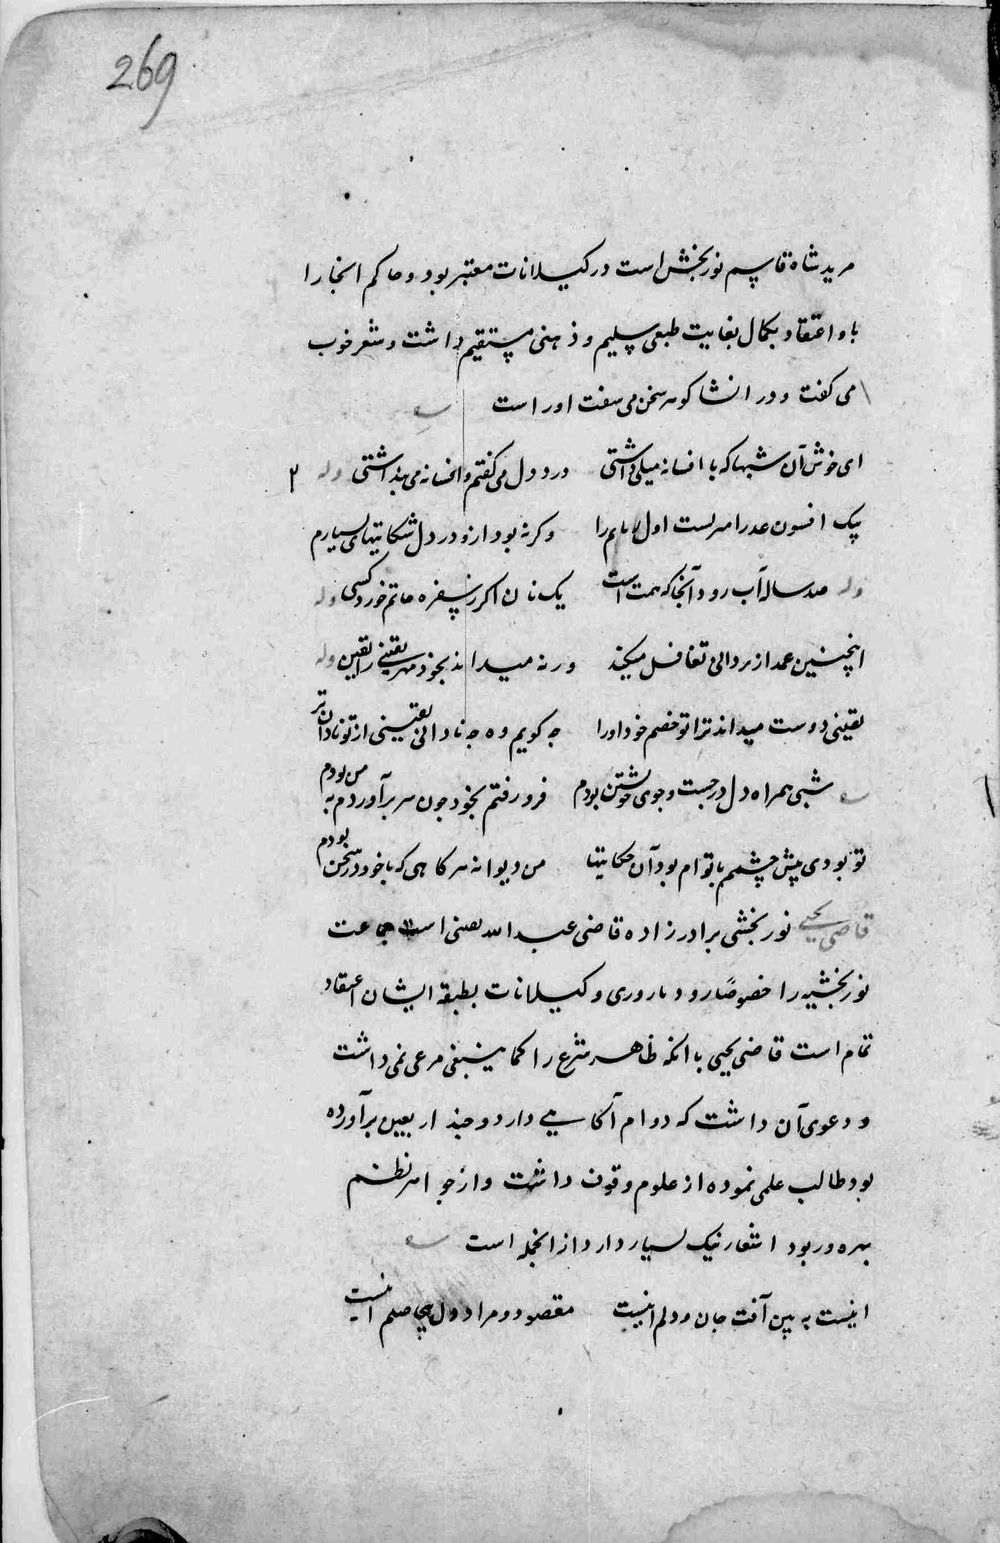 269
مرید شاه قاسم نوربخش است در کیلانات معتبر بود و حاکم انجا را
باو اعتقاد بکمال بغایت طبعی سلیم و ذهنی مستقیم داشت و شعر خوب
می کفت و در انشا کوهر سخن می سفت او راست
ای خوش آن شبها که با افسانه میلی داشتی درد دل می کفتم و افسانه می پنداشتی وله
یک افسون عدرا مر بست اول وکرنه بود از و در دل شکایتهای بسیارم
وله صد ساله آب رود آنجا که همت است یک نان اکر ز سفره حاتم خورد کسی وله
اینچنین عمدا ز بردالی تغافل میکند ورنه میداند بخود مهر یقینی را یقین وله
یقینی دوست میداند ترا تو خصم خود او را چه کویم وه چه نادانی یقینی از تو نادان تر
شبی همراه دل در جست و جوی خویشتن بودم فرو رفتم بخود چون سر برآوردم به من بودم
تو بودی پیش چشمم با توام بود آن حکایتها من دیوانه هر کاهی که با خود در سخن بودم
قاضی یحیی نوربخشی برادرزاده قاضی عبدالله یقینی است جماعت
نوربخشیه را خصوصا رودباروری و کیلانات بطبقه ایشان اعتقاد
تمام است قاضی یحیی با انکه ظاهر شرع را کما ینبغی مرعی نمی داشت
و دعوی آن داشت که دوام آکاهی دارد و چند اربعین برآورده
بود طالب علمی نموده از علوم وقوف داشت و از جواهر نظم
بهره ور بود اشعار نیک بسیار دارد از انجمله است
اینست به بین آفت جان و دلم اینست مقصود و مراد دل بی حاصلم اینست